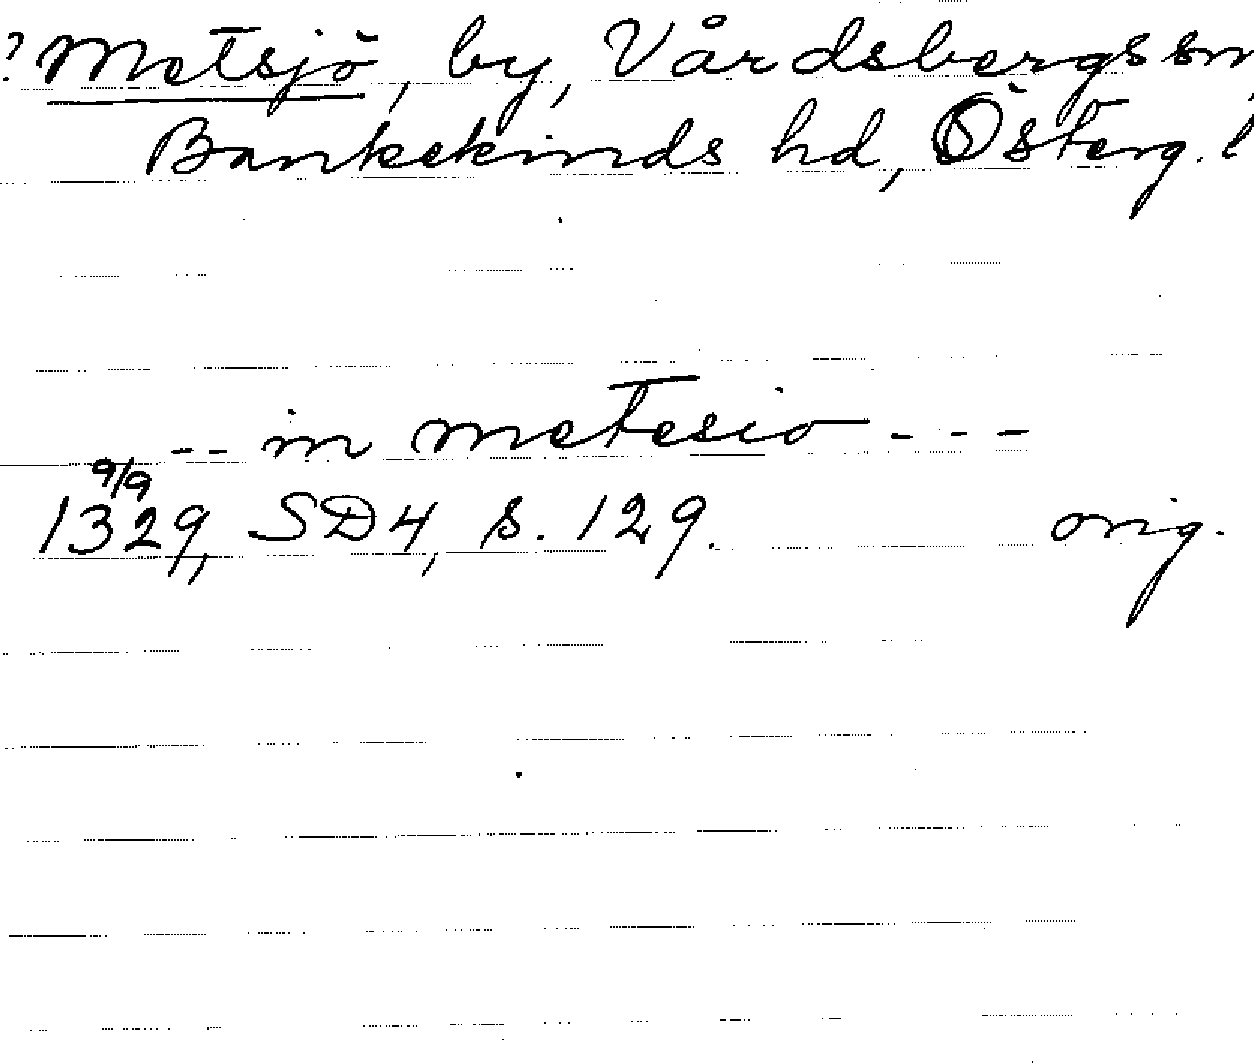 ? Metsjö, by, Vårdsbergs sn
Bankekinds hd, Österg. l
-- in metesio ---
9/9
1329, SD4, s. 129. orig.